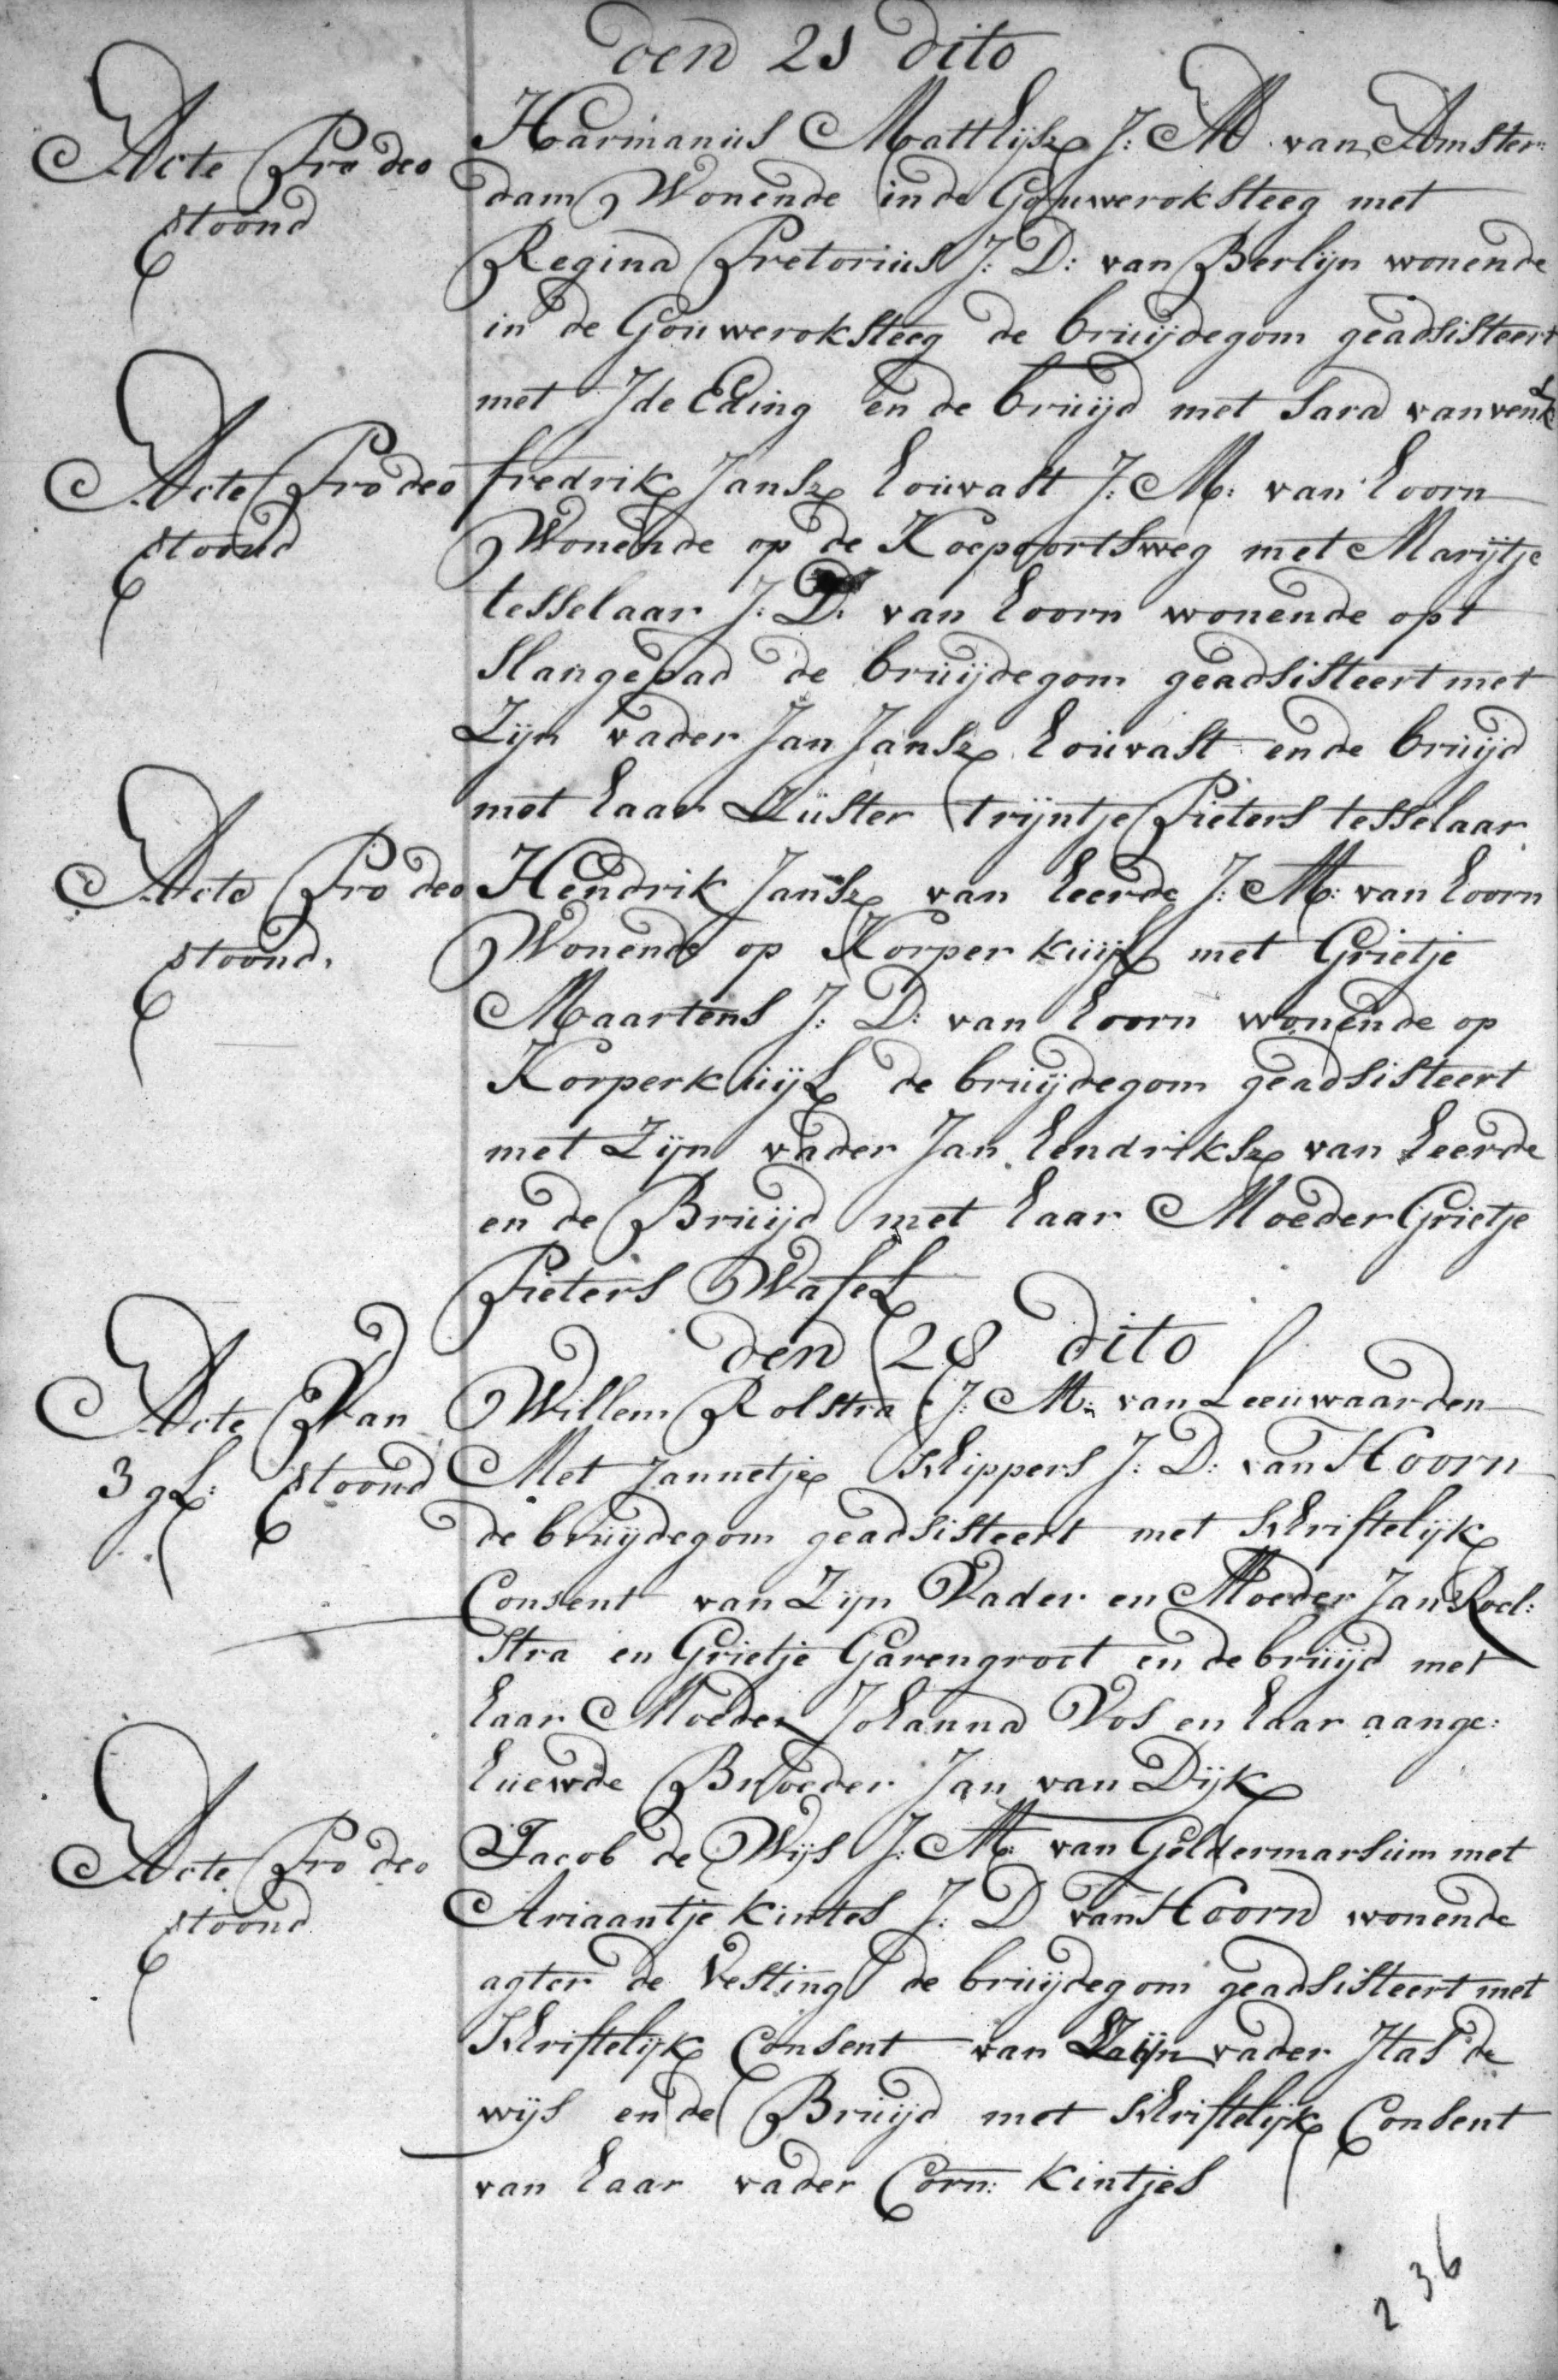 den 21 dito
Acte Pro deo
stoond
Harmanus Matthijsz J: M van Amster:
dam Wonende in de Gouwerok steeg met
Regina Pretorius J: D: van Berlijn wonende
in de Gouwerok steeg de bruijdegom geadsisteert
met Ide Eding en de bruijd met Sara van
Acte Pro deo
stoond
fredrik Jansz houvast J: M: van hoorn
Wonende op de Koepoortsweg met Marijtje
tesselaar J: D: van hoorn wonende opt
Slangepad de bruijdegom geadsisteert met
Zijn vader Jan Jansz houvast en de bruijd
met haar Zuster trijntje Pieters tesselaar
Acte Pro deo
stoond.
Hendrik Jansz van heerde J: M: van hoorn
Wonende op Korperkuijl met Grietje
Maartens J: D: van hoorn wonende op
Korperkuijl de bruijdegom geadsisteert
met Zijn vader Jan hendriksz van heerde
en de Bruijd met haar Moeder Grietje
Pieters Wafel
den 28 dito
Acte Van
3 gl: stoond
Willem Rolstra J: M: van Leeuwaarden
Met Jannetje Schippers J: D: van Hoorn
de bruijdegom geadsisteert met schriftelijk
Consent van Zijn Vader en Moeder Jan Roel:
stra en Grietje Garengroot en de bruijd met
haar Moeder Johanna Vos en haar aange:
huewde Broeder Jan van Dijk
Acte Pro deo
stoond
Jacob de Wijs J: M: van Geldermarsum met
Ariaantje Kintes J: D van Hoorn wonende
agter de Vesting de bruijdegom geadsisteert met
Schriftelijk Consent van Zijn vader Itas de
wijs en de Bruijd met schriftelijk Consent
van haar vader Corn: Kintjes
236